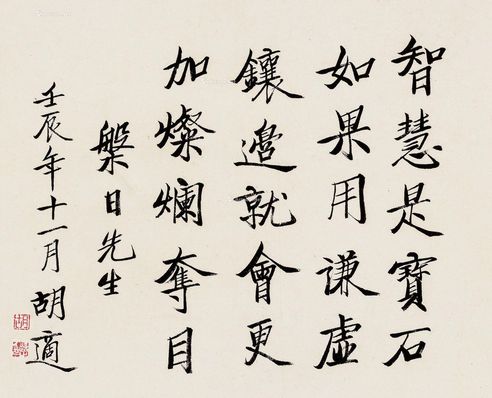 智慧是寶石
如果用谦虚
鑲邊就會更
加燦爛奪目
槃日先生
壬辰年十一月 胡適